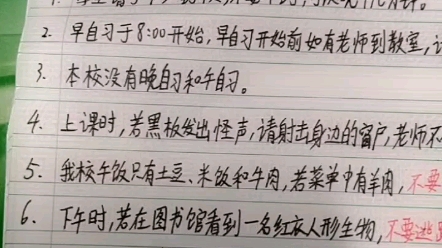 2. 早自习于8:00开始,早自习开始前如有老师到教室,
3. 本校没有晚自习和午自习。
4. 上课时,若黑板发出怪声,请射击身边的窗户,老师不
5. 我校午饭只有土豆、米饭和牛肉,若菜单中有羊肉,不要
6. 下午时,若在图书馆看到一名红衣人形生物,不要逃